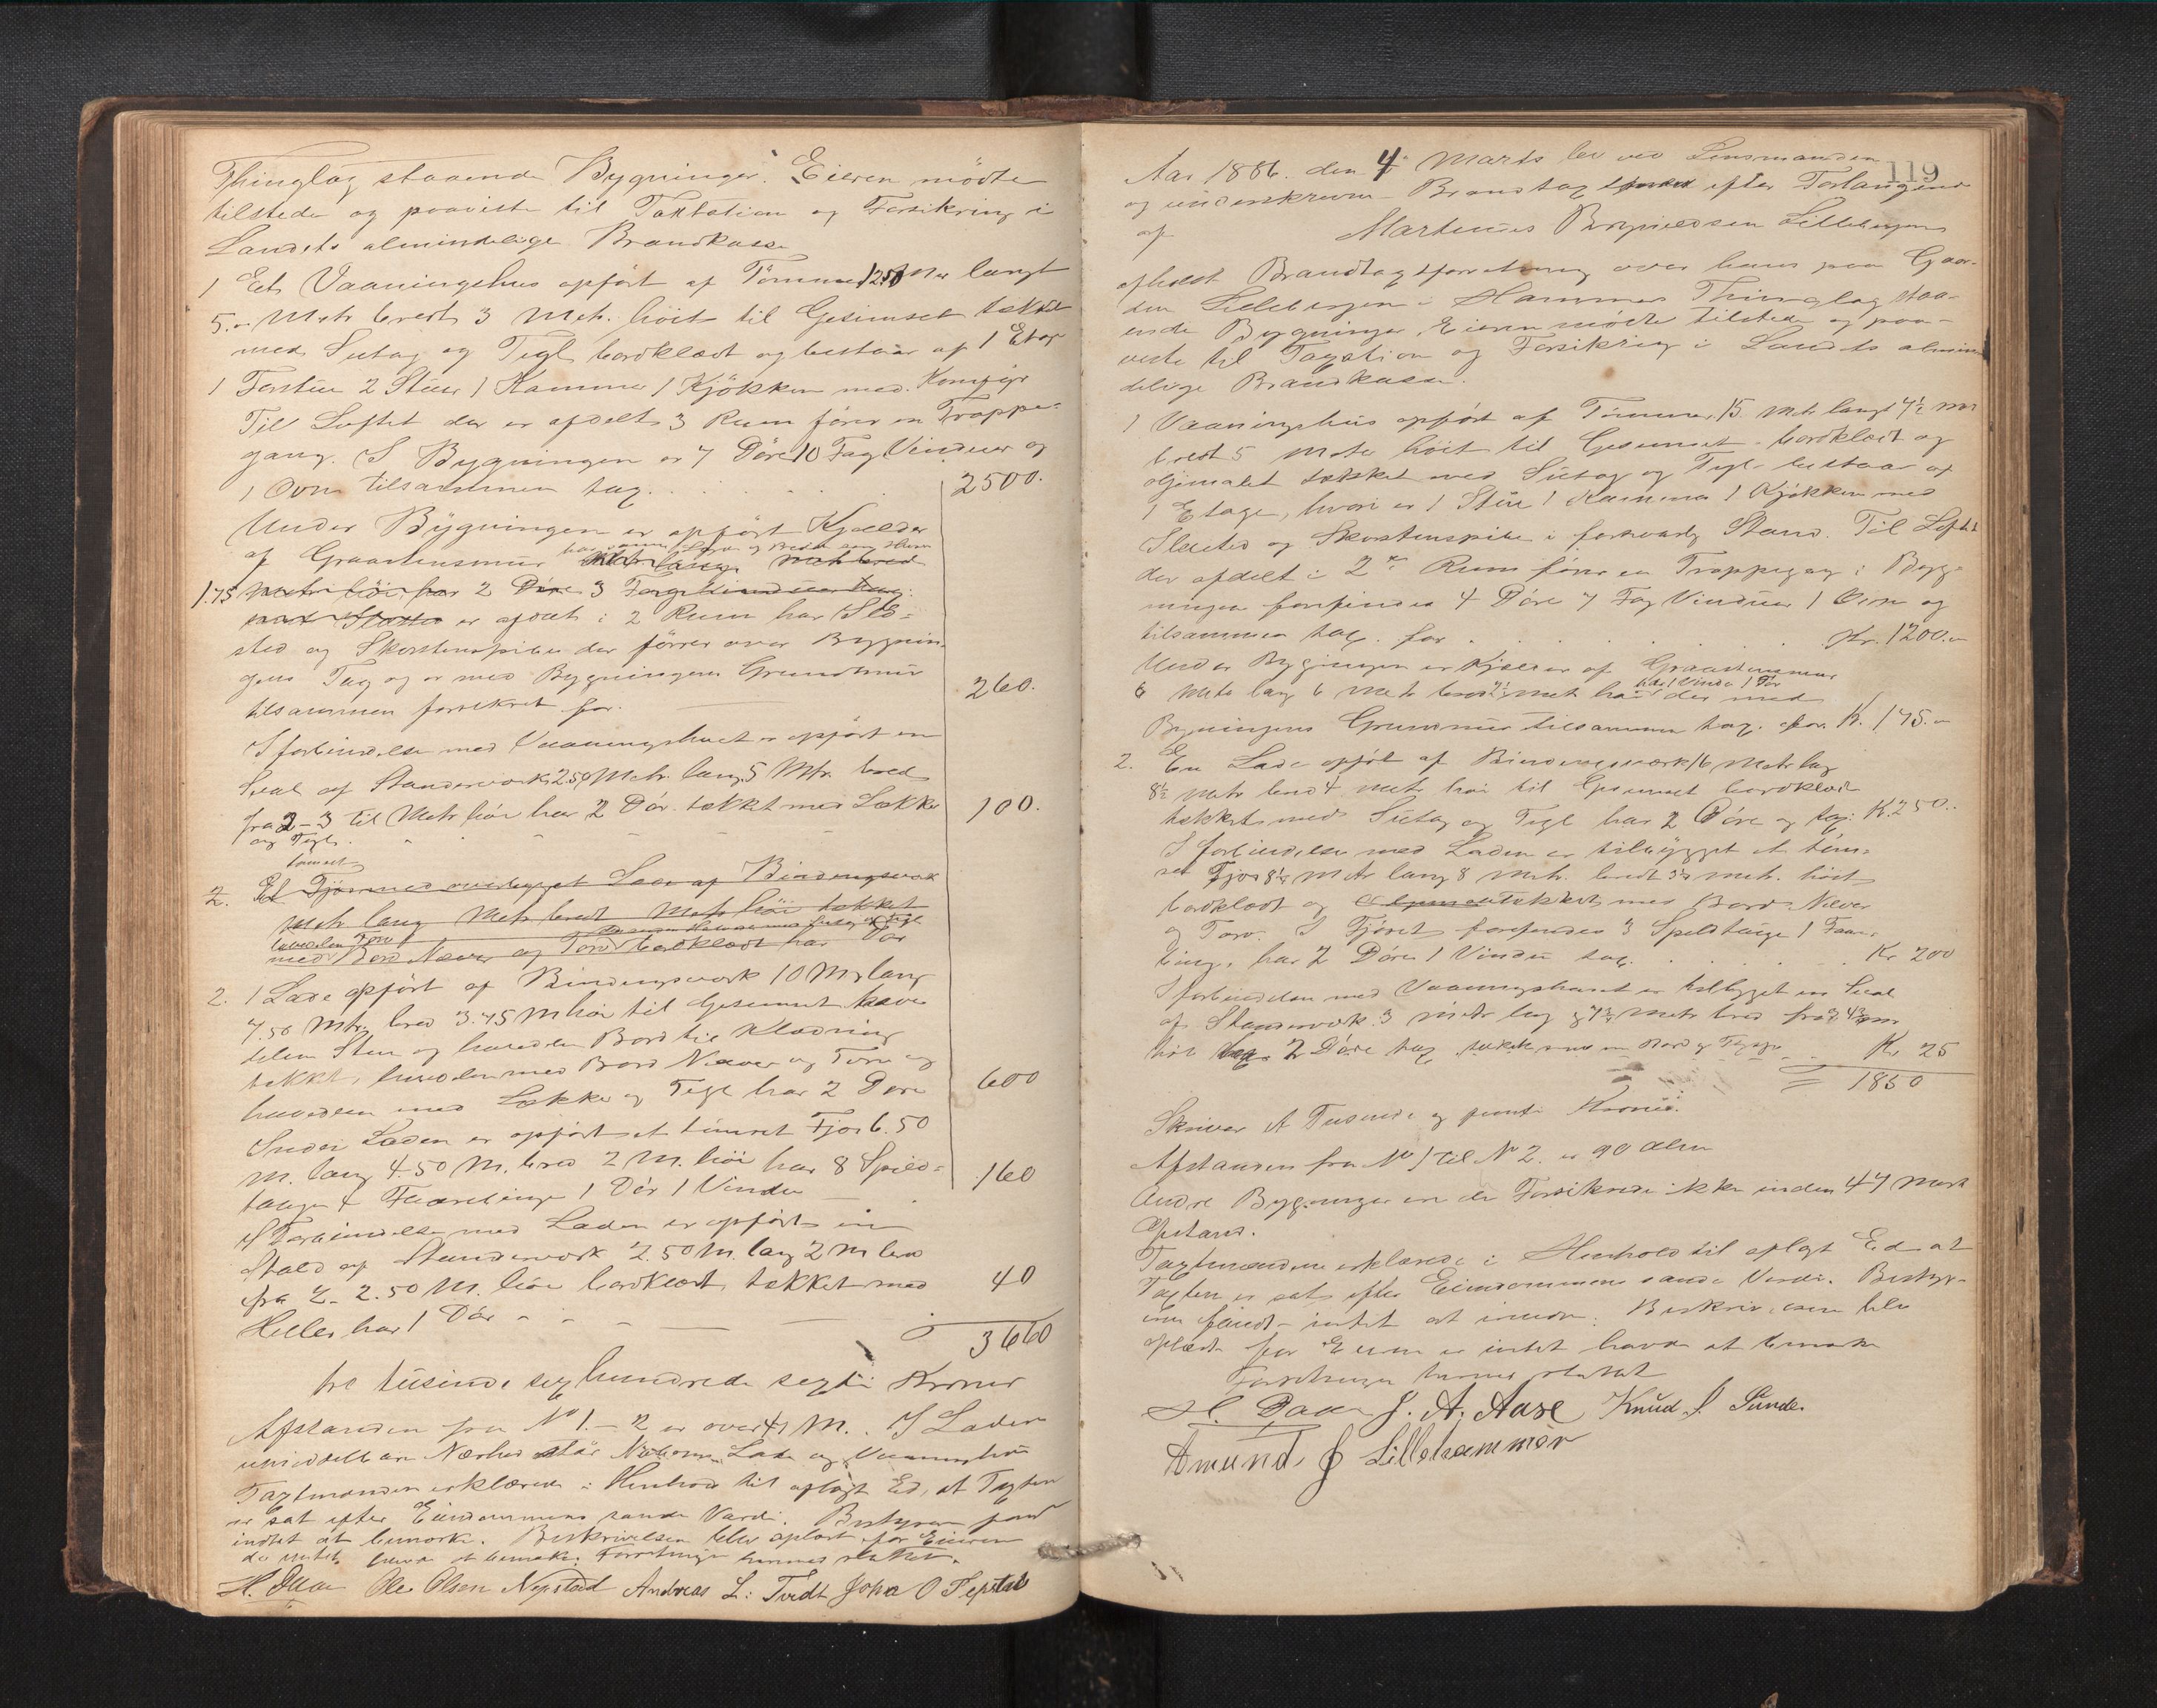 Thinglag staaende Bygninger. Eieren mödte
tilstede og paaviste til Taxtation og Forsikring i
Landets almindelige Brandkasse
1 Et Vaaningshus opfört af Tömmer 12.50 Met langt
5.– Metr bredt 3 Metr. höit til Gesimset tækket
med Sutag og Tegl bordklædt og bestaar af 1 Etage
1 Forstue 2 Stuer 1 Kammer 1 Kjökken med Komfyr
Til Loftet der er afdelt 3 Rumförer en Trappe-
gang. I Bygningen er 7 Döre 10 Fag Vinduer og
1 Ovn tilsammen tax. 2500.
Under Bygningen er opfört Kjælder
af Graastensmur
1.75 Metr höi har 2 Döre 3 Fag
er afdelt i 2 Rum har Ild-
sted og Skorstenspibe der förer over Bygnin-
gens Tag og er med Bygningens Grundmur
tilsammen forsikret for. 260.
I forbindelse med Vaaningshuset er opfört en
Sval af Standerværk 2.50 Metr. lang 5 Mtr. bred
fra 2–3 til Metr höi har 2 Dör tækket med Lække 100.
og Tegl.
tömret
2. Et Fjös med overbygget Lade af Bindingsværk
Metr lang Metr bredt Metr höi tækket
med Bord Næver og Torv bordklædt har Dör
2. 1 Lade opfört af Bindingsværk 10 M lang
7.50 Mtr. bred 3.75 M höi til Gesimset halve
delen Sten og halvdelen Bord til Klædning
tækket, halvdelen med Bord Næver og Torv og
halvdelen med Lække og Tegl har 2 Döre 600
Under Laden er opfört et tömret Fjös 6.50
M. lang 4.50 M. bred 2 M. höi har 8 Spild-
tauge 1 Dör 1 Vindu 160
I Forbindelse med Laden er opfört en
Stald af Standerværk 2.50 M lang 2 M bred
fra 2–2.50 M. höi bordklædt, tækket med 40
Heller har 1 Dör
3660
tre tusinde sex hundrede sexti Kroner
Afstanden fra No 1–2 er over M. I Ladens
umiddelbare Nærhed står Naboens Lade og Vaaningshus
Taxtmændene erklærede i Henhold til aflagt Ed, at Taxten
er sat efter Eiendommens sande Værdi. Bestyreren fand
intet at bemærke. Beskrivelsen blev oplæst for Eieren
der intet havde at bemærke. Forretningen hermed sluttet.
Ole Olsen Nepstad Andreas L: Tvedt John O Tepstad
119
Aar 1886. den 4 Marts blev ved Lensmanden
og underskrevne Brandtaxtmænd efter Forlangende
af Martinus Brynieldsen Lillebergen
afholdt Brandtaxtforretning over hans paa Gaar-
den Lillebergen i Hammer Thinglag staa-
ende Bygninger. Eieren mödte tilstede og paa-
viste til Taxation og Forsikring i Landets almin
delige Brandkasse.
1 Vaaningshus opfört af Tömmer 15 Metr langt 7½ Mtr
bredt 5 Metr höit til Gesimset – bordklædt og
oljemalet tækket med Sutag og Tegl – bestaar af
1 Etage, hvori er 1 Stue 1 Kammer 1 Kjökken med
Ildsted og Skorstenspibe i forsvarlig Stand. Til Loftet
der afdelt i 2de Rum förer en Trappegang i Byg-
ningen forefindes 4 Döre 7 Fag Vinduer 1 Ovn og
tilsammen tax. for Kr. 1200.–
Under Bygningen er Kjælder af Graastensmur
har 1 Vindu 1 Dör
6 Metr lang 6 Metr bred 2½ Metr höi der med
Bygningens Grundmur tilsammen tax. for K. 175.–
2. En Lade opfört af Bindingsværk 16 Metr lang
8½ Metr bred 4 Metr höi til Gesimset bordklædt
tækket med Sutag og Tegl har 2 Döre og tax: K. 250.–
I forbindelse med Laden er tilbygget et töm-
ret Fjös 8½ Metr lang 8 Metr. bredt Metr. höit
bordklædt og tækket med Bord Næver
og Torv. I Fjöset forefindes 3 Spildtauge 1 Faar-
binge, har 2 Döre 1 Vindu tax. Kr 200
I forbindelse med Vaaningshuset er tilbygget en Sval
af Standerværk 3 Metr lang Metr bred fra
höi 2 Döre tax. tækket med Bord og Kr 25
= 1850
Skriver Et Tusinde og femti Kroner.
Afstanden fra No 1 til No 2. er 90 Alen
Andre Bygninger end de Forsikrede ikke inden 47 Metr
Afstand.
Taxtmændene erklærede i Henhold til aflagt Ed at
Taxten er sat efter Eiendommens sande Værdi. Bestyre-
ren fandt intet at . Beskrivelsen blev
oplæst for Eieren der intet havde at bemærke
Forretningen hermed sluttet
J. A. Aase Knud J. Sunde.
Amund J Lillehammer